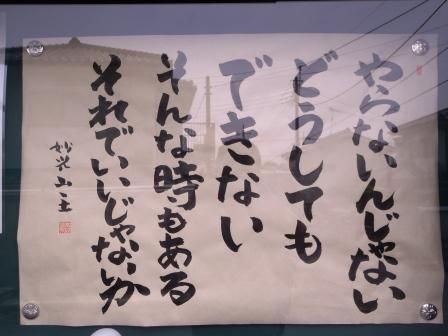 やらないんじゃない
どうしても
できない
そんな時もある
それでいいじゃないか
妙光山主